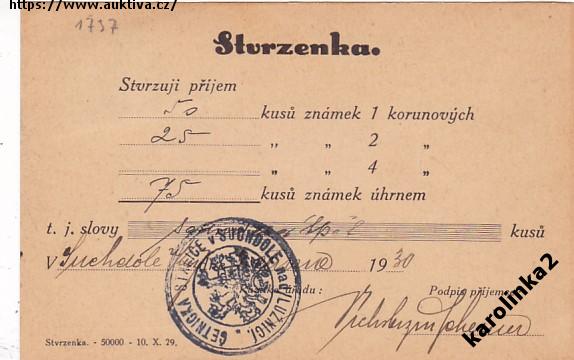 https://www.auktiva.cz/
1737
Stvrzenka.
Stvrzuji příjem
50 kusů známek 1 korunových
25 „ „ 2 „
„ „ 4 „
75 kusů známek úhrnem
t. j. slovy kusů
V Suchdole 1930
Razítko úřadu: Podpis příjemce
ČETNICKÁ STANICE V SUCHDOLE nad LUŽNICÍ
Stvrzenka. - 50000 - 10. X. 29.
karolinka2